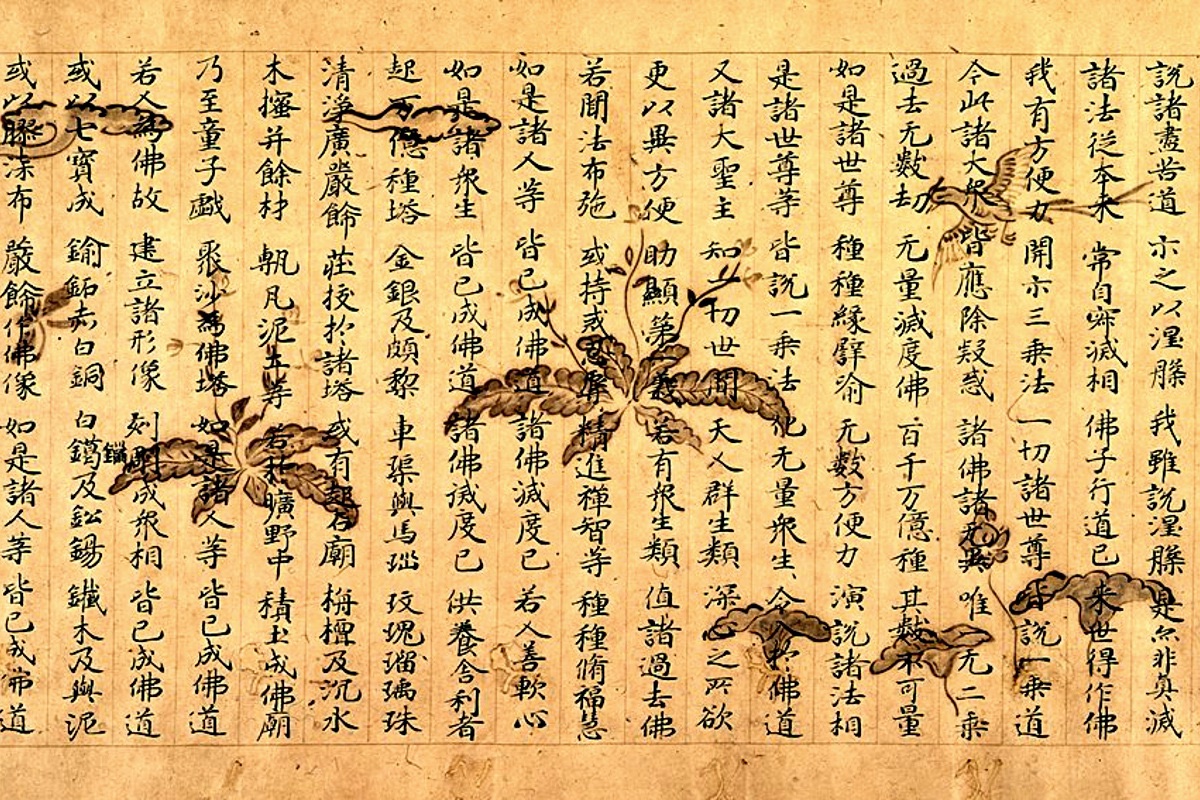 說諸盡苦道 示之以涅槃 我雖說涅槃 是亦非真滅
諸法從本来 常自寂滅相 佛子行道已 来世得作佛
我有方便力 開示三乗法 一切諸世尊 皆說一乗道
今此諸大衆 皆應除疑惑 諸佛語无異 唯一无二乗
過去无數劫 无量滅度佛 百千万億種 其數不可量
如是諸世尊 種種緣譬喻 无數方便力 演說諸法相
是諸世尊等 皆說一乗法 化无量衆生 令入於佛道
又諸大聖主 知一切世間 天人群生類 深心之所欲
更以異方便 助顯第一義 若有衆生類 值諸過去佛
若聞法布施 或持戒忍辱 精進禪智等 種種脩福慧
如是諸人等 皆已成佛道 諸佛滅度已 若人善軟心
如是諸衆生 皆已成佛道 諸佛滅度已 供養舍利者
起万億種塔 金銀及頗黎 車𤦲與馬瑙 玫瑰瑠璃珠
清淨廣嚴飾 莊挍於諸塔 或有起石廟 栴檀及沉水
木櫁并餘材 塼瓦泥土等 若於曠野中 積土成佛廟
乃至童子戯 聚沙為佛塔 如是諸人等 皆已成佛道
若人為佛故 建立諸形像 刻雕成衆相 皆已成佛道
或以七寶成 鍮鉐赤白銅 白鑞及鈆錫 鐵木及與泥
或以膠漆布 嚴飾作佛像 如是諸人等 皆已成佛道